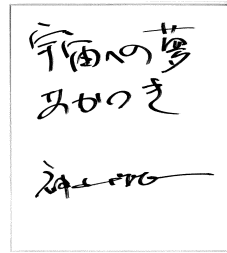 宇宙への夢
みかつき